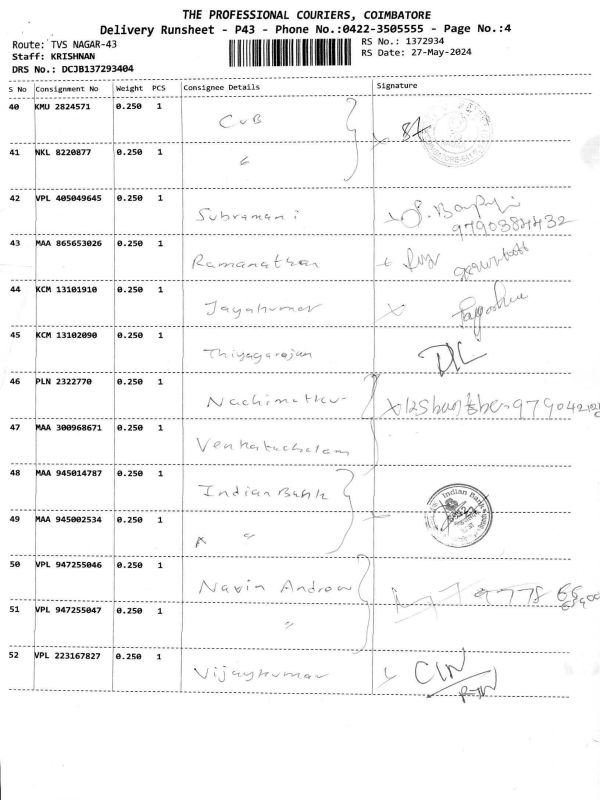 THE PROFESSIONAL COURIERS, COIMBATORE
Delivery Runsheet - P43 - Phone No.:0422-3505555 - Page No.:4
Route: TVS NAGAR-43 RS No.: 1372934
Staff: KRISHNAN RS Date: 27-May-2024
DRS No.: DCJB137293404
S No Consignment No Weight PCS Consignee Details Signature
40 KMU 2824571 0.250 1 CUB
41 NKL 8220877 0.250 1 "
42 VPL 405049645 0.250 1 Subramani 9790384432
43 MAA 865653026 0.250 1 Ramanathan
44 KCM 13101910 0.250 1 Jayakumar
45 KCM 13102090 0.250 1 Thiyagarajan
46 PLN 2322770 0.250 1 Nachimuthu
47 MAA 300968671 0.250 1 Venkatachalam
48 MAA 945014787 0.250 1 Indian Bank Indian Bank
49 MAA 945002534 0.250 1 "
50 VPL 947255046 0.250 1 Navin Andrew
51 VPL 947255047 0.250 1 "
52 VPL 223167827 0.250 1 Vijaykumar